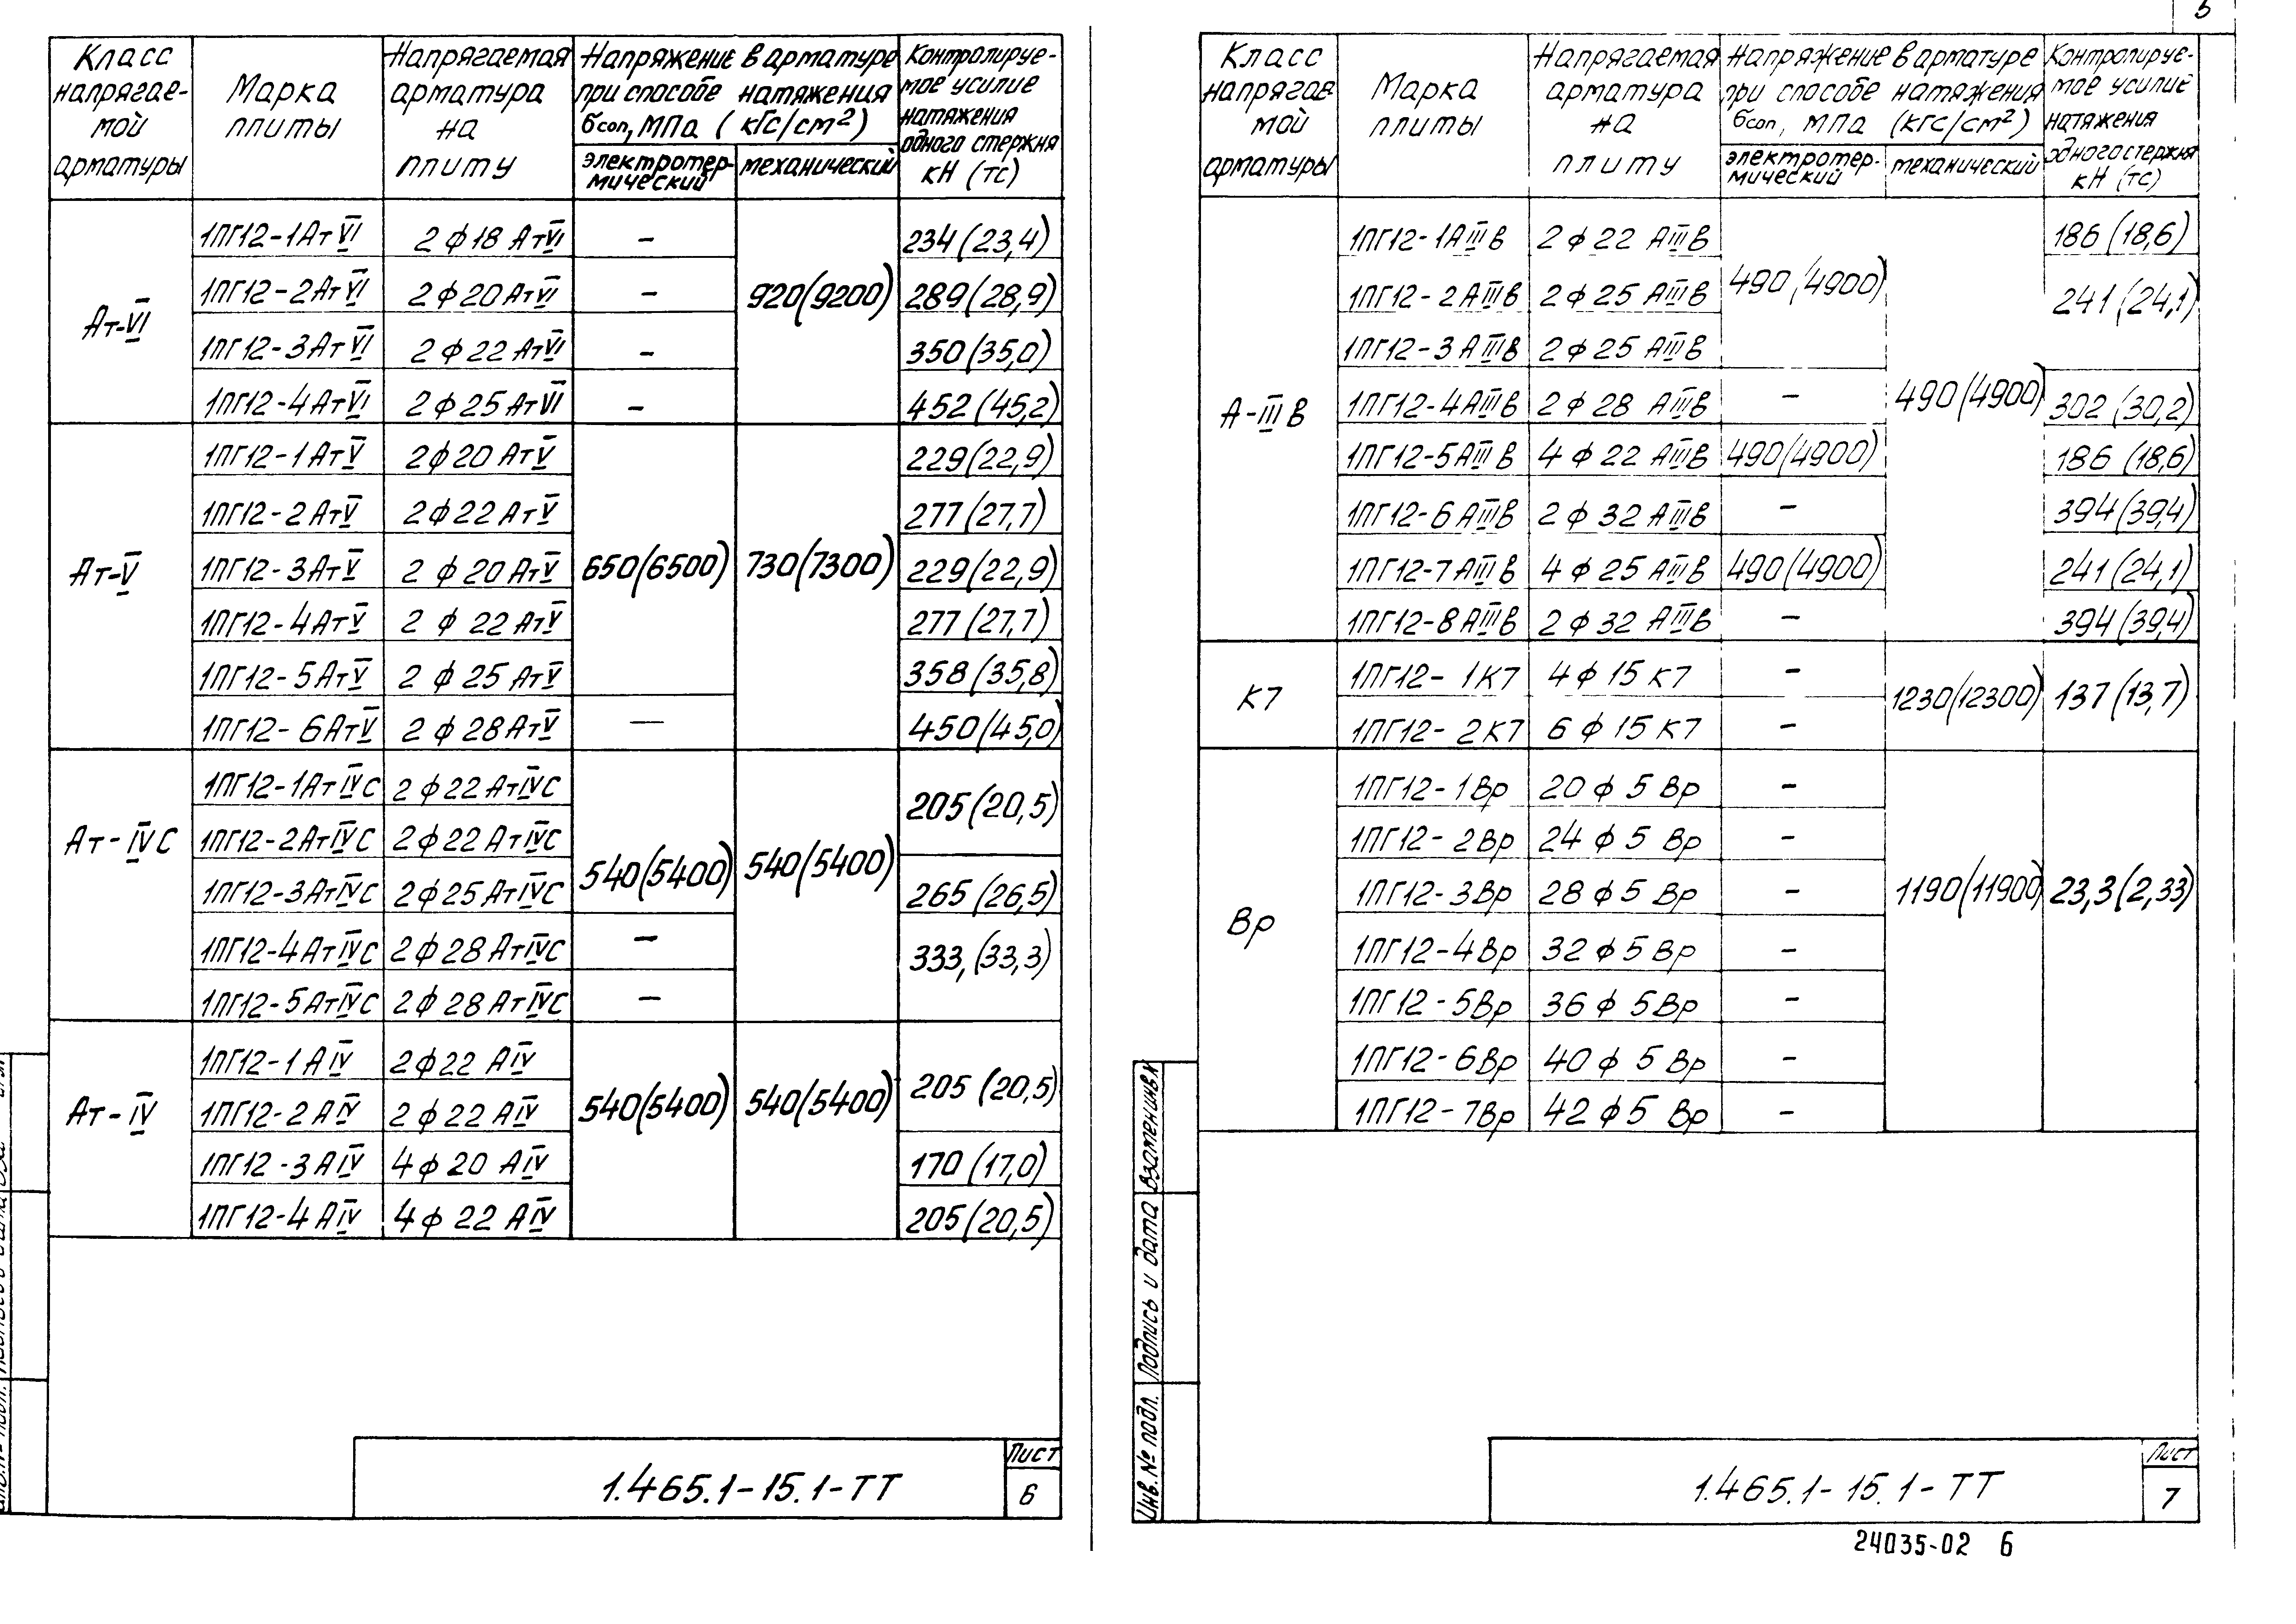 Класс напрягае-мой арматуры
Марка плиты
Напрягаемая арматура на плиту
Напряжение в арматуре при способе натяжения бсоп, МПа (кгс/см²)
электротер-мический
механический
Контролируе-мое усилие натяжения одного стержня кН (тс)
Ат-VI
1ПГ12-1АтVI 2ф18 АтVI - 920(9200) 234(23,4)
1ПГ12-2АтVI 2ф20 АтVI - 289(28,9)
1ПГ12-3АтVI 2ф22 АтVI - 350(35,0)
1ПГ12-4АтVI 2ф25 АтVI - 452(45,2)
Ат-V
1ПГ12-1АтV 2ф20 АтV 650(6500) 730(7300) 229(22,9)
1ПГ12-2АтV 2ф22 АтV 277(27,7)
1ПГ12-3АтV 2ф20 АтV 229(22,9)
1ПГ12-4АтV 2ф22 АтV 277(27,7)
1ПГ12-5АтV 2ф25 АтV 358(35,8)
1ПГ12-6АтV 2ф28АтV — 450(45,0)
Ат-IVС
1ПГ12-1АтIVС 2ф22 АтIVС 540(5400) 540(5400) 205(20,5)
1ПГ12-2АтIVС 2ф22 АтIVС
1ПГ12-3АтIVС 2ф25 АтIVС 265(26,5)
1ПГ12-4АтIVС 2ф28 АтIVС - 333,(33,3)
1ПГ12-5АтIVС 2ф28 АтIVС -
Ат-IV
1ПГ12-1АIV 2ф22 АIV 540(5400) 540(5400) 205(20,5)
1ПГ12-2АIV 2ф22 АIV
1ПГ12-3АIV 4ф20 АIV 170(17,0)
1ПГ12-4АIV 4ф22 АIV 205(20,5)
1.465.1-15.1-ТТ
Лист
6
5
Класс напрягае мой арматуры
Марка плиты
Напрягаемая арматура на плиту
Напряжение в арматуре при способе натяжения бсоп, МПа (кгс/см²)
электротер-мический
механический
Контролируе-мое усилие натяжения одного стержня кН (тс)
А-IIIв
1ПГ12-1АIIIв 2ф22 АIIIв 490(4900) 490(4900) 186(18,6)
1ПГ12-2АIIIв 2ф25 АIIIв 241(24,1)
1ПГ12-3АIIIв 2ф25 АIIIв
1ПГ12-4АIIIв 2ф28 АIIIв - 302(30,2)
1ПГ12-5АIIIв 4ф22 АIIIв 490(4900) 186(18,6)
1ПГ12-6АIIIв 2ф32 АIIIв - 394(39,4)
1ПГ12-7АIIIв 4ф25 АIIIв 490(4900) 241(24,1)
1ПГ12-8АIIIв 2ф32 АIIIв - 394(39,4)
К7
1ПГ12-1К7 4ф15 К7 - 1230(12300) 137(13,7)
1ПГ12-2К7 6ф15 К7 -
Вр
1ПГ12-1Вр 20ф5 Вр - 1190(11900) 23,3(2,33)
1ПГ12-2Вр 24ф5 Вр -
1ПГ12-3Вр 28ф5 Вр -
1ПГ12-4Вр 32ф5 Вр -
1ПГ12-5Вр 36ф5Вр -
1ПГ12-6Вр 40ф5 Вр -
1ПГ12-7Вр 42ф5 Вр -
Инв.№ подл. Подпись и дата Взамен инв.№
1.465.1-15.1-ТТ
Лист
7
24035-02 6